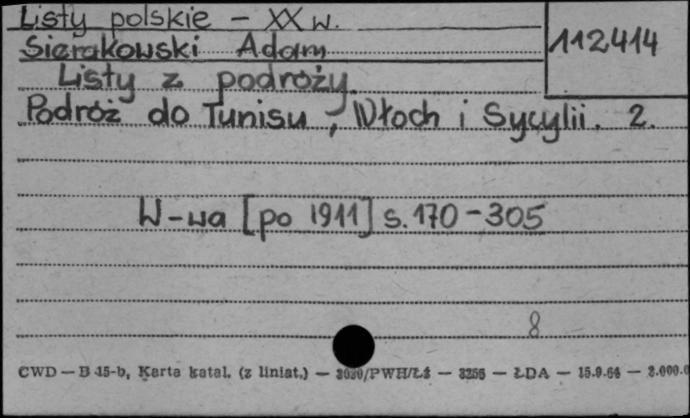 Listy polskie - XX w.
Sierakowski Adam
112414
Listy z podróży.
Podróż do Tunisu, Włoch i Sycylii. 2.
W-wa [po 1911] s. 170-305
8
CWD — B 45-b, Karta katal. (z liniat.) — /PWH/Łż — 3256 — ŁDA — 15.9.64 —